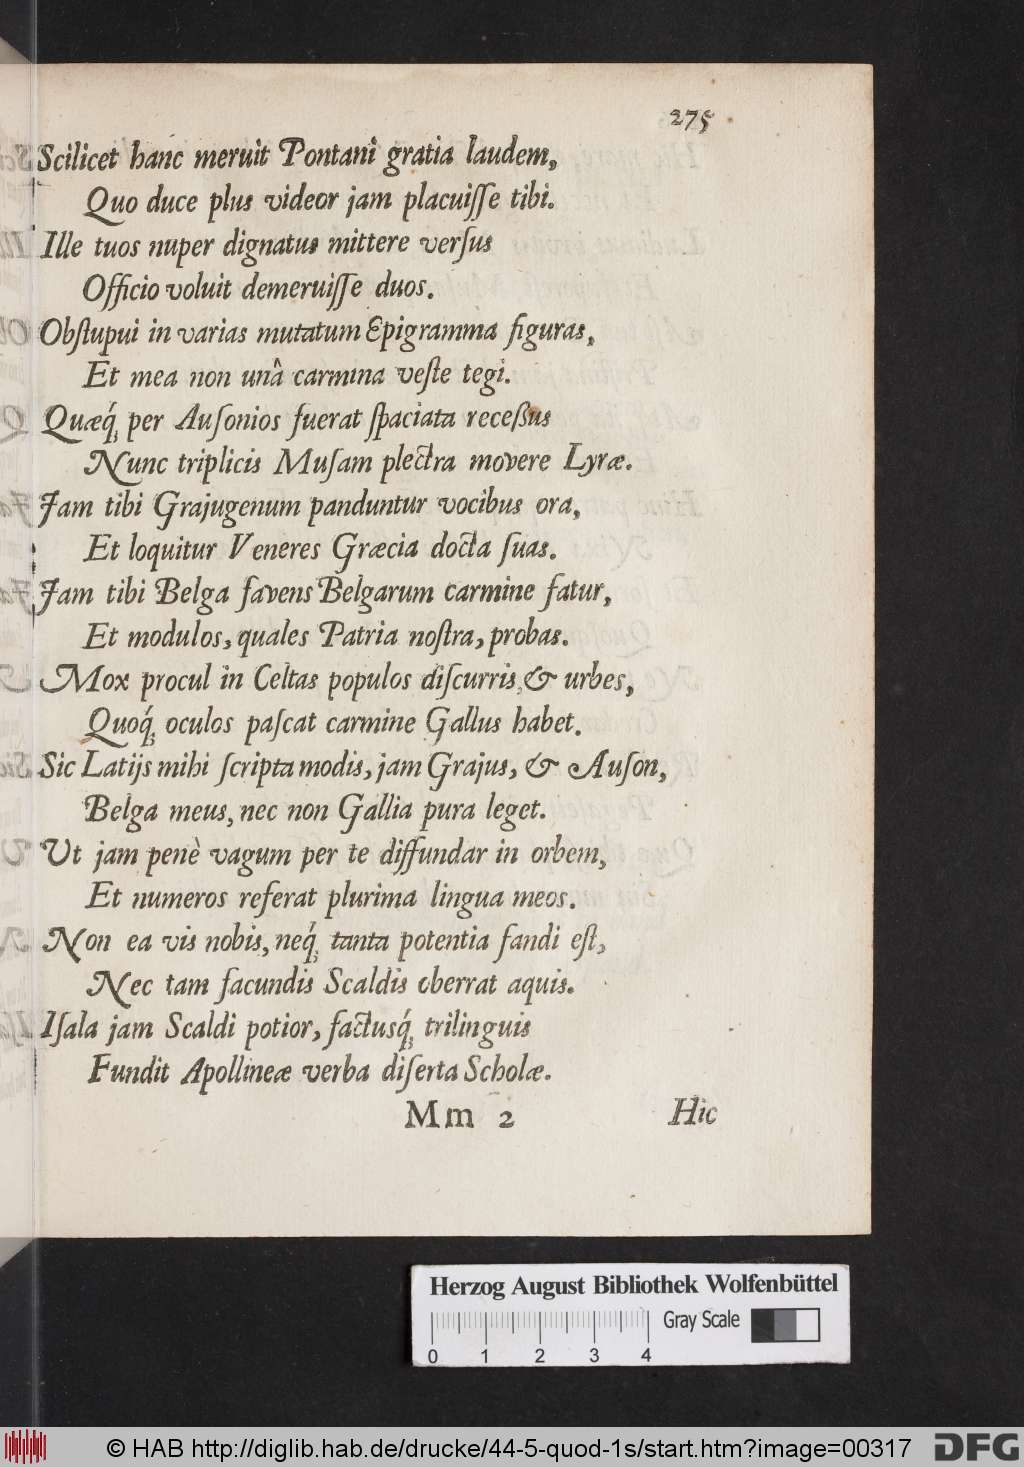 275
Scilicet hanc meruit Pontanî gratia laudem,
Quo duce plus videor jam placuiſſe tibi.
Ille tuos nuper dignatus mittere verſus
Officio voluit demeruiſſe duos.
Obſtupui in varias mutatum Epigramma figuras,
Et mea non unâ carmina veſte tegi.
Quæq́; per Auſonios fuerat ſpaciata receßus
Nunc triplicis Muſam plectra movere Lyræ.
Jam tibi Grajugenum panduntur vocibus ora,
Et loquitur Veneres Græcia docta ſuas.
Jam tibi Belga favens Belgarum carmine fatur,
Et modulos, quales Patria noſtra, probas.
Mox procul in Celtas populos diſcurris, & urbes,
Quoq́; oculos paſcat carmine Gallus habet.
Sic Latijs mihi ſcripta modis, jam Grajus, & Auſon,
Belga meus, nec non Gallia pura leget.
Ut jam penè vagum per te diffundar in orbem,
Et numeros referat plurima lingua meos.
Non ea vis nobis, neq́; tanta potentia fandi eſt,
Nec tam facundis Scaldis oberrat aquis.
Iſala jam Scaldi potior, factusq́; trilinguis
Fundit Apollineæ verba diſerta Scholæ.
Mm 2 Hic
Herzog August Bibliothek Wolfenbüttel
Gray Scale
0 1 2 3 4
© HAB http://diglib.hab.de/drucke/44-5-quod-1s/start.htm?image=00317 DFG